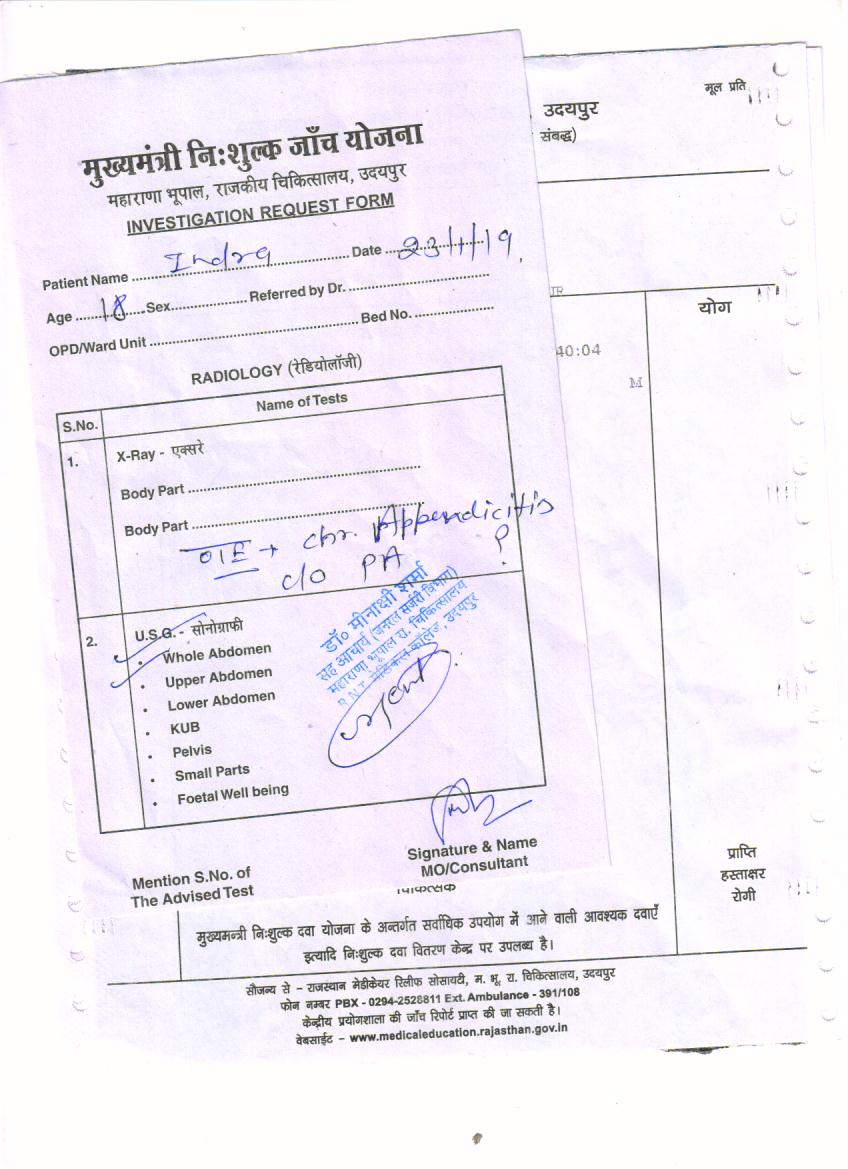 मूल प्रति
उदयपुर
संबद्ध)
मुख्यमंत्री निःशुल्क जाँच योजना
महाराणा भूपाल, राजकीय चिकित्सालय, उदयपुर
INVESTIGATION REQUEST FORM
Patient Name Indra Date 23/1/19
Age 18 Sex Referred by Dr.
OPD/Ward Unit Bed No.
योग
40:04
M
RADIOLOGY (रेडियोलॉजी)
S.No. Name of Tests
1. X-Ray - एक्सरे
Body Part
Body Part
O/E + chr. Appendicitis
c/o PA ?
2. U.S.G. - सोनोग्राफी
• Whole Abdomen
• Upper Abdomen
• Lower Abdomen
• KUB
• Pelvis
• Small Parts
• Foetal Well being
डॉ० मीनाक्षी शर्मा
सह आचार्य (जनरल सर्जरी विभाग)
महाराणा भूपाल रा. चिकित्सालय
R.N.T. मेडिकल कॉलेज, उदयपुर
Signature & Name
MO/Consultant
Mention S.No. of
The Advised Test
चिकित्सक
प्राप्ति
हस्ताक्षर
रोगी
मुख्यमन्त्री निःशुल्क दवा योजना के अन्तर्गत सर्वाधिक उपयोग में आने वाली आवश्यक दवाएँ
इत्यादि निःशुल्क दवा वितरण केन्द्र पर उपलब्ध है।
सौजन्य से – राजस्थान मेडीकेयर रिलीफ सोसायटी, म. भू. रा. चिकित्सालय, उदयपुर
फोन नम्बर PBX - 0294-2528811 Ext. Ambulance - 391/108
केन्द्रीय प्रयोगशाला की जाँच रिपोर्ट प्राप्त की जा सकती है।
वेबसाईट – www.medicaleducation.rajasthan.gov.in